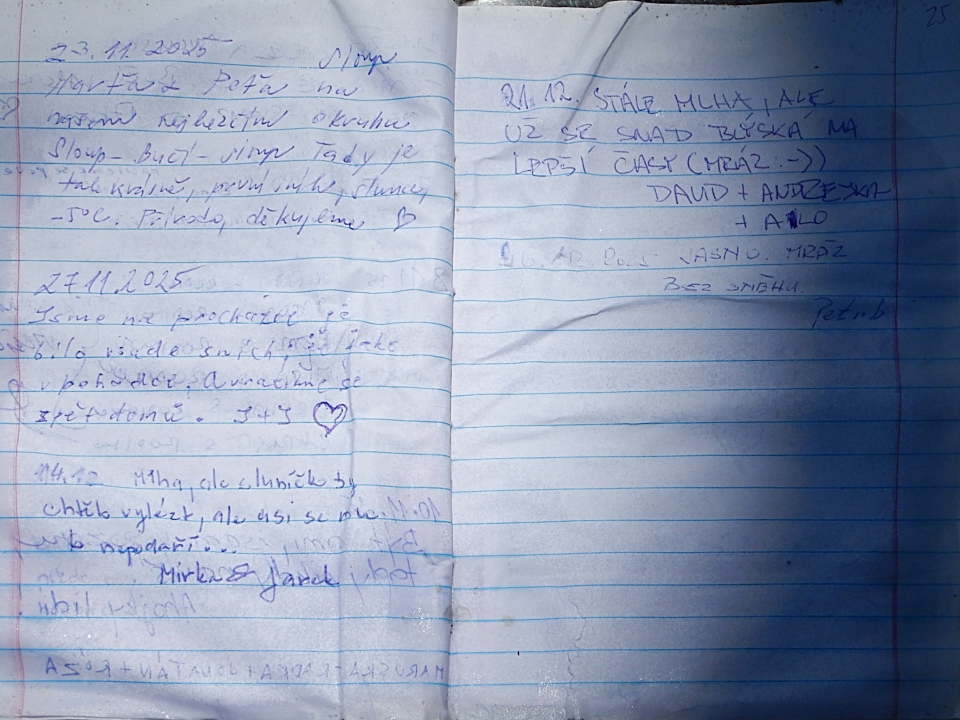 23.11.2025 Sloup
Marťa & Peťa na
našem nejdelším okruhu
Sloup - Bučí - Sloup Tady je
tak krásně, první sníh, slunce,
-5°C. Přírodo, děkujeme ♡
27.11.2025
Jsme na procházce je
bílo všude sníh, je jako
v pohádce. A vracíme se
zpět domů. J+J ♡
14.12 Mlha, ale sluníčko by
chtělo vylézt, ale asi se mu
to nepodaří...
Mirka & Jarek
25
21.12. STÁLE MLHA, ALE
UŽ SE SNAD BLÝSKÁ NA
LEPŠÍ ČASY (MRÁZ :-))
DAVID + ANDREJKA
+ ARLO
26.12.2025 JASNO. MRÁZ
BEZ SNĚHU
Petr b